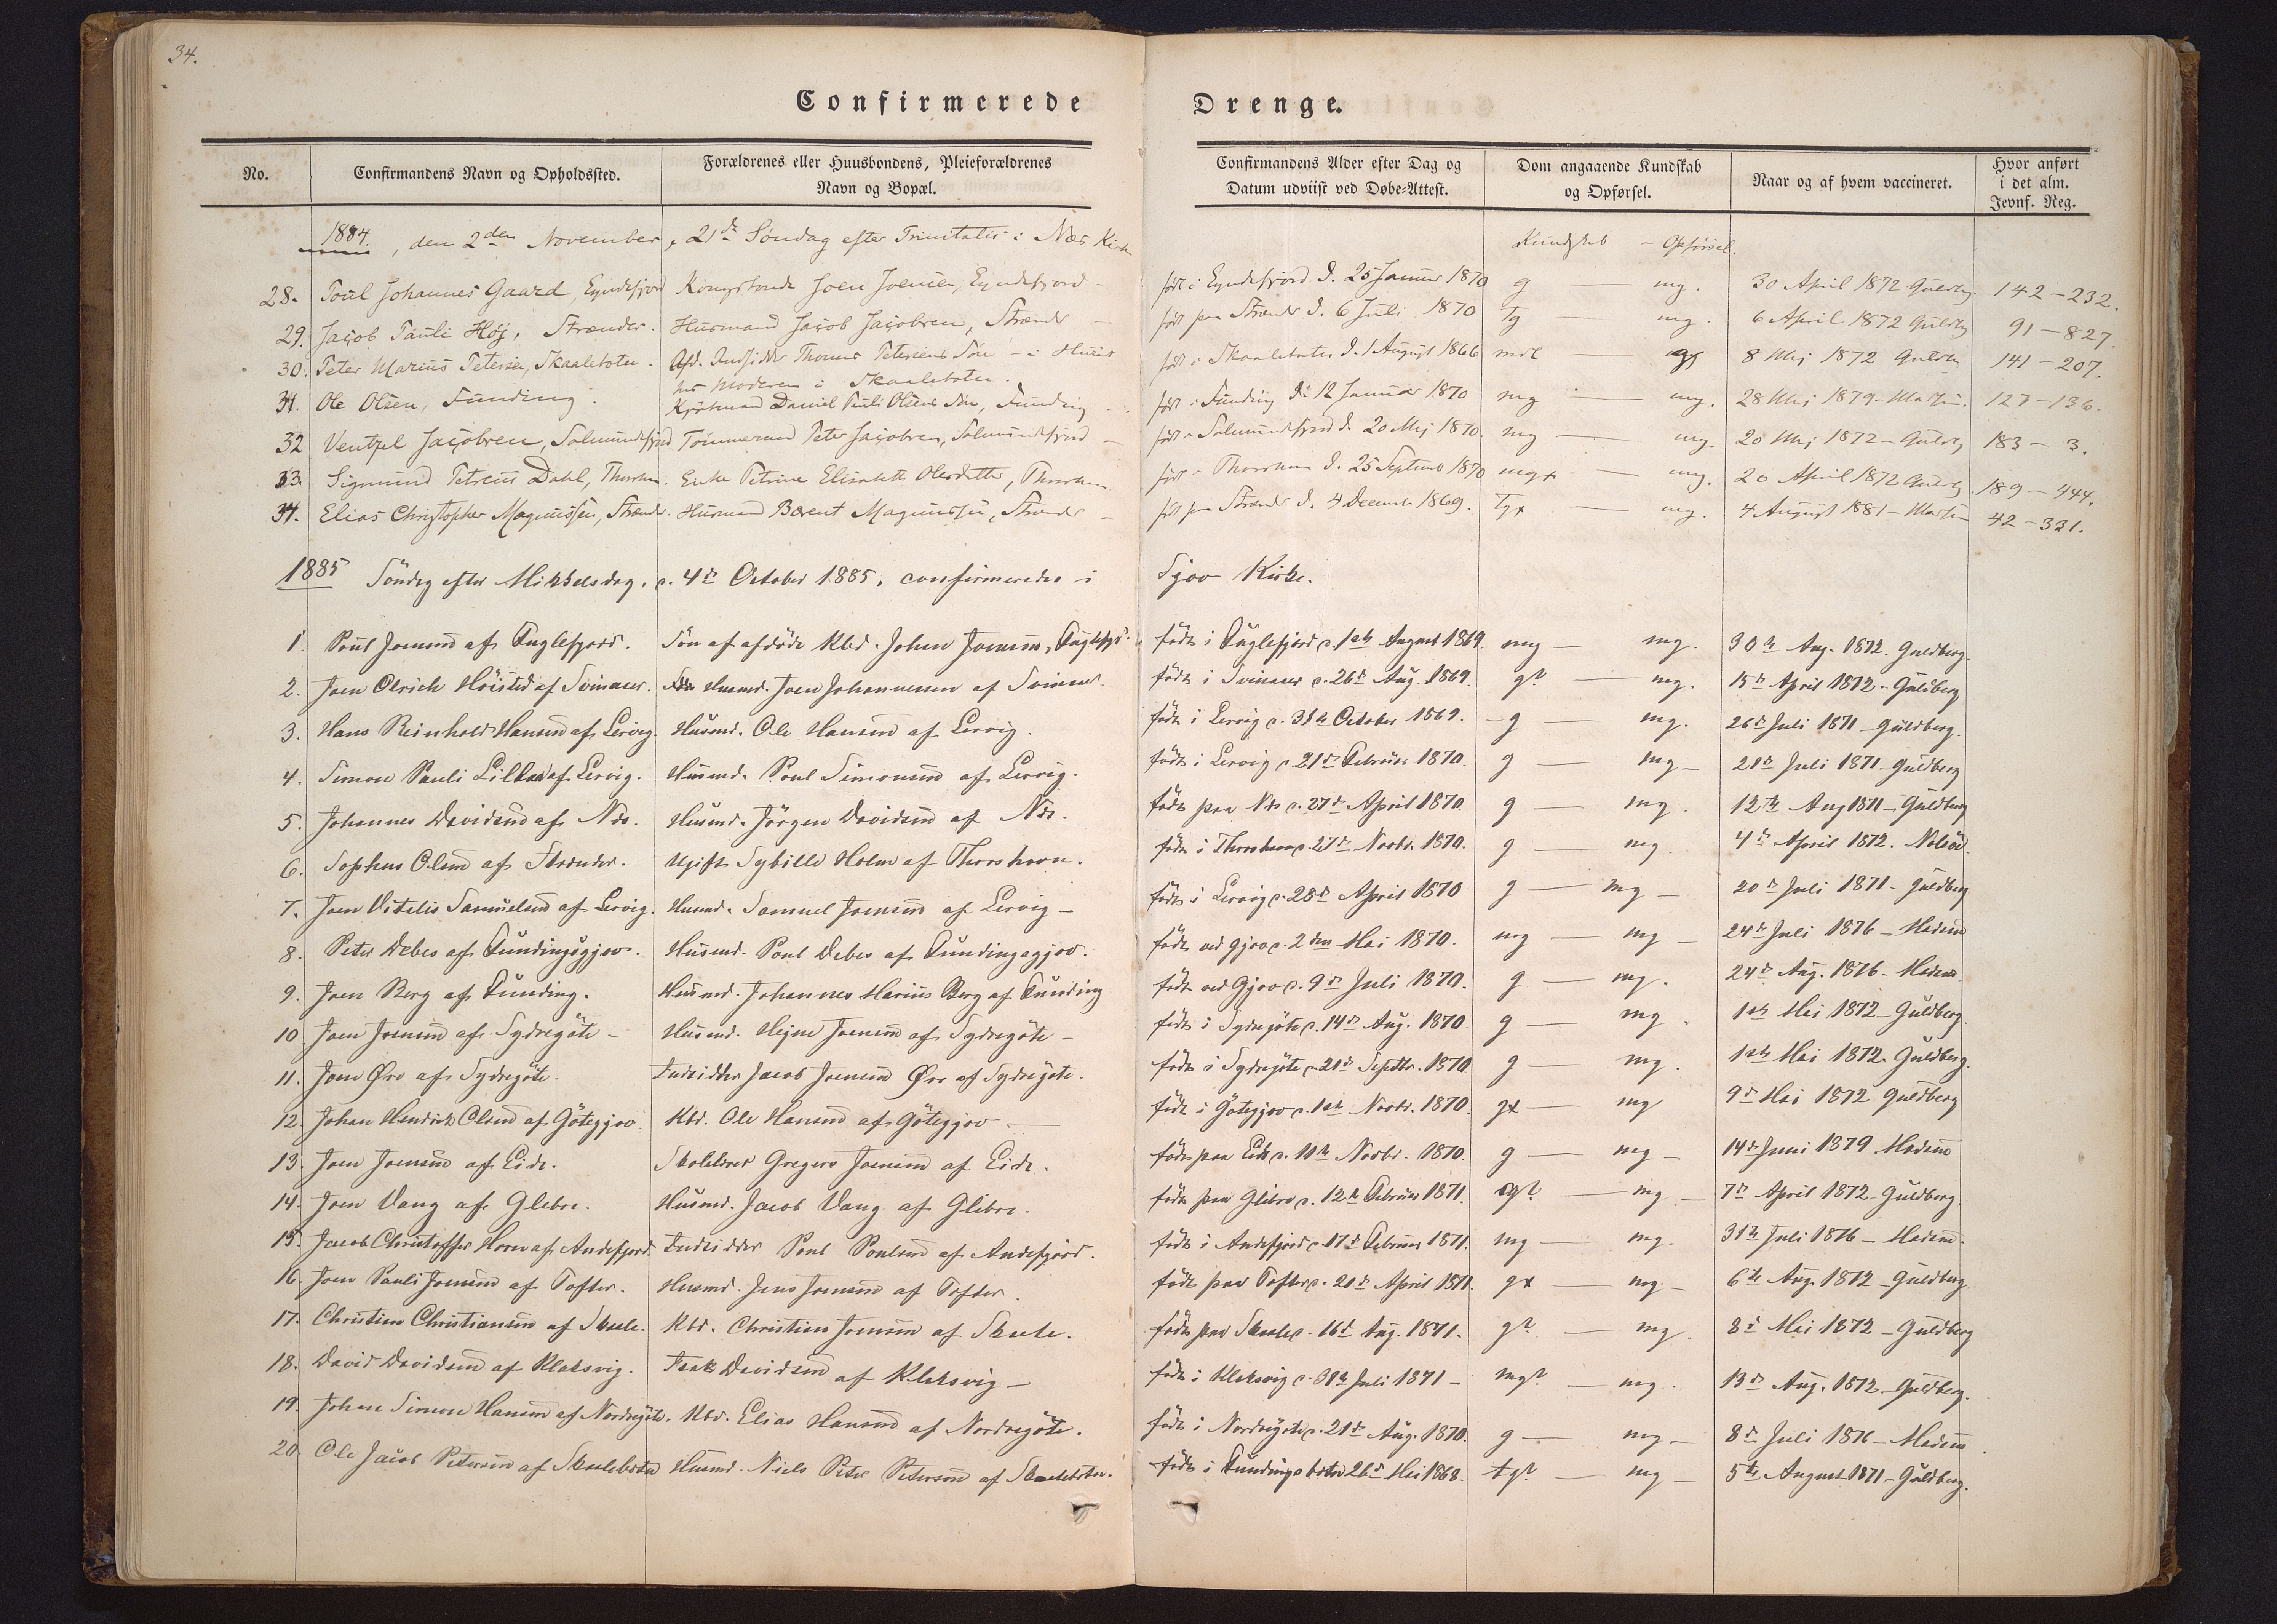 34.
Confirmerede Drenge.
No. Confirmandens Navn og Opholdssted. Forældrenes eller Huusbondens, Pleieforældrenes Navn og Bopæl. Confirmandens Alder efter Dag og Datum udviist ved Døbe-Attest. Dom angaaende Kundskab og Opførsel. Naar og af hvem vaccineret. Hvor anført i det alm. Jevnf. Reg.
1884, den 2den November, 21de Søndag efter Trinitatis i Næs Kirke Kundskab - Opførsel.
28. Poul Johannes Gaard, Eyndefjord Kongsbonde Joen Joensen, Eyndefjord - født i Eyndefjord d. 25 Januar 1870 g — mg. 30 April 1872 Guldbg 142-232.
29. Jacob Pauli Høj, Strænder. Husmand Jacob Jacobsen, Strænder - født paa Strænder d. 6 Juli 1870 tg — mg. 6 April 1872 Guldbg 91-827.
30. Peter Marius Petersen, Skaalebotn. Afd. Indsidder Thomas Petersens Søn - i Huset hos Moderen i Skaalebotn. født i Skaalebotn d. 1 August 1866 mdl — 8 Mej 1872 Guldbg 141-207.
31. Ole Olsen, Funding. Kjøbmand Daniel Pauli Olsens Søn, Funding født i Funding d. 12 Januar 1870 mg — mg. 28 Mej 1879 - Madsen. 127-136.
32 Ventzel Jacobsen, Solmundefjord Tømmermand Peter Jacobsen, Solmundefjord - født i Solmundefjord d. 20 Mej 1870. mg — mg. 20 Mej 1872 - Guldbg 183-3.
33. Sigmund Petreus Dahl, Thorshavn. Enke Petrine Elisabeth Olesdatter, Thorshavn født i Thorshavn d. 25 September 1870 mg+ — mg. 20 April 1872 Guldbg 189-444.
34. Elias Christopher Magnussen, Strænder. Husmand Bærent Magnussen, Strænder - født paa Strænder d. 4 December 1869. tg+ — mg. 4 August 1881 - Madsen 42-331.
1885 Söndag efter Mikkelsdag, d. 4de October 1885, confirmeredes i Gjov Kirke.
1. Poul Joensen af Fuglefjord. Sön af afdöde Kbd. Johan Joensen, Fuglefjd. födt i Fuglefjord d. 1ste August 1869. mg — mg. 30te Aug. 1872. Guldberg.
2. Joen Olrich Höisted af Svinaaer. Husmd. Joen Johannesen af Svinaaer. födt i Svinaaer d. 26de Aug. 1869. g? — mg. 15de April 1872 - Guldberg
3. Hans Reinhold Hansen af Lervig. Husmd. Ole Hansen af Lervig. födt i Lervig d. 31te October 1869. - g — mg. 26de Juli 1871 - Guldberg.
4. Simon Pauli Lilkad af Lervig. Husmd. Poul Simonsen af Lervig. födt i Lervig d. 21de Februar 1870. g — mg - 21de Juli 1871 - Guldberg
5. Johannes Davidsen af Næs. Husmd. Jörgen Davidsen af Næs. födt paa Næs d. 27de April 1870. g — mg. 12te Aug 1871 - Guldberg
6. Sophus Olsen af Strænder. Ugift Sybille Holm af Thorshavn. födt i Thorshavn d. 27de Novbr. 1870. g — mg. 4de April 1872. Nolsöe.
7. Joen Vitalis Samuelsen af Lervig. Husmd. Samuel Joensen af Lervig - födt i Lervig d. 28de April 1870 g — mg - 20de Juli 1871 - Guldberg
8. Peter Debes af Fundingsgjov. Husmd. Poul Debes af Fundingsgjov. födt ved Gjov d. 2den Mai 1870. mg — mg - 24de Juli 1876 - Madsen
9. Joen Berg af Funding. Husmd. Johannes Marius Berg af Funding födt ved Gjov d. 9de Juli 1870. g — mg. 24de Aug. 1876 - Madsen
10 Joen Joensen af Sydregöte - Husmd. Hejne Joensen af Sydregöte - födt i Sydregöte d. 14de Aug. 1870. g — mg. 1ste Mai 1872 - Guldberg.
11. Joen Øre af Sydregöte. Indsidder Jacob Joensen Øre af Sydregöte. födt i Sydregöte d. 21de Septbr. 1870 g — mg. 1ste Mai 1872. Guldberg.
12. Johan Hendrik Olsen af Götegjov. Kbd. Ole Hansen af Götegjov. — födt i Götegjov d. 1ste Novbr. 1870. g+ — mg 9de Mai 1872 Guldberg
13. Joen Joensen af Eide. Skolelærer Gregers Joensen af Eide. födt paa Eide d. 11te Novbr. 1870. g — mg - 14de Juni 1879 Madsen
14. Joen Vang af Glibre. Husmd. Jacob Vang af Glibre. födt paa Glibre d. 12te Februar 1871. g? — mg - 7de April 1872 - Guldberg.
15. Jacob Christoffer Horn af Andefjord. Indsidder Poul Poulsen af Andefjord. födt i Andefjord d. 17de Februar 1871. mg — mg. 31te Juli 1876 - Madsen.
16. Joen Pauli Joensen af Tofter. Husmd. Jens Joensen af Tofter. födt paa Tofter d. 20de April 1871. g+ — mg - 6te Aug. 1872 - Guldberg.
17. Christian Christiansen af Skaale. Kbd. Christian Joensen af Skaale. födt paa Skaale d. 16de Aug. 1871. g? — mg. 8de Mai 1872 - Guldberg
18. David Davidsen af Klaksvig. Isak Davidsen af Klaksvig - födt i Klaksvig d. 31te Juli 1871 - mg? — mg. 13de Aug. 1872 - Guldberg.
19. Johan Simon Hansen af Nordregöte. Kbd. Elias Hansen af Nordregöte. födt i Nordregöte d. 21de Aug. 1870. g — mg - 8de Juli 1876 - Madsen.
20. Ole Jacob Petersen af Skaalebotn Husmd. Niels Peter Petersen af Skaalebotn. födt i Fundingsbotn 26de Mai 1868. tg? — mg - 5te August 1871 - Guldberg.